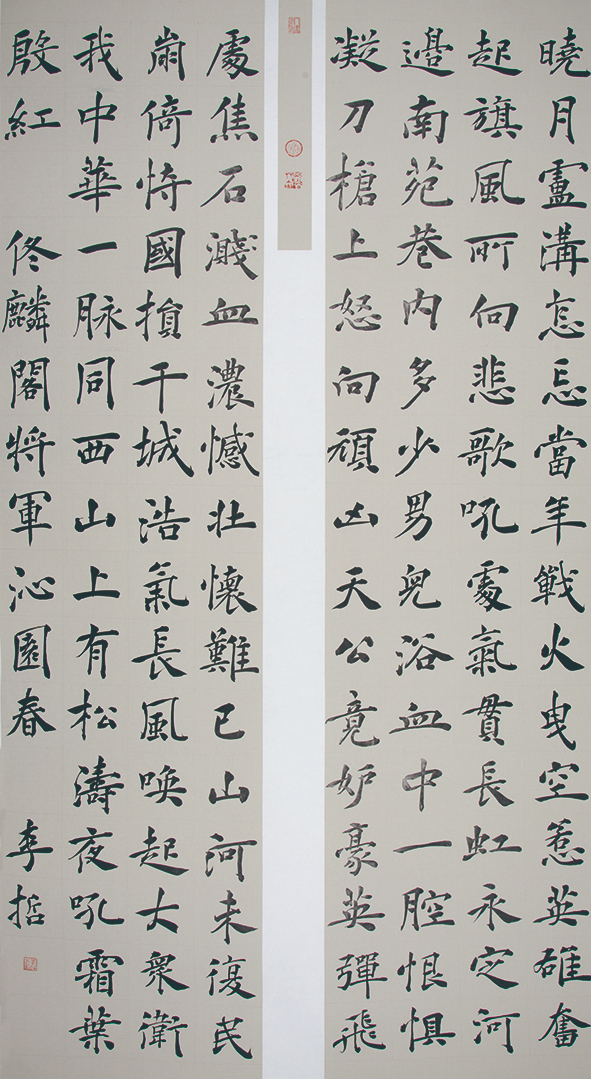 曉月盧溝怎忘當年戰火曳空惹英雄奮
起旗風所向悲歌吼處氣貫長虹永定河
邊南苑巷內多少男兒浴血中一腔恨惧
凝刀槍上怒向頑凶天公竟妒豪英彈飛
處焦石濺血濃憾壯懷難已山河未復民
崩倚恃國損干城浩氣長風喚起大衆衛
我中華一脈同西山上有松濤夜吼霜葉
殷紅 佟麟閣將軍沁園春 李哲